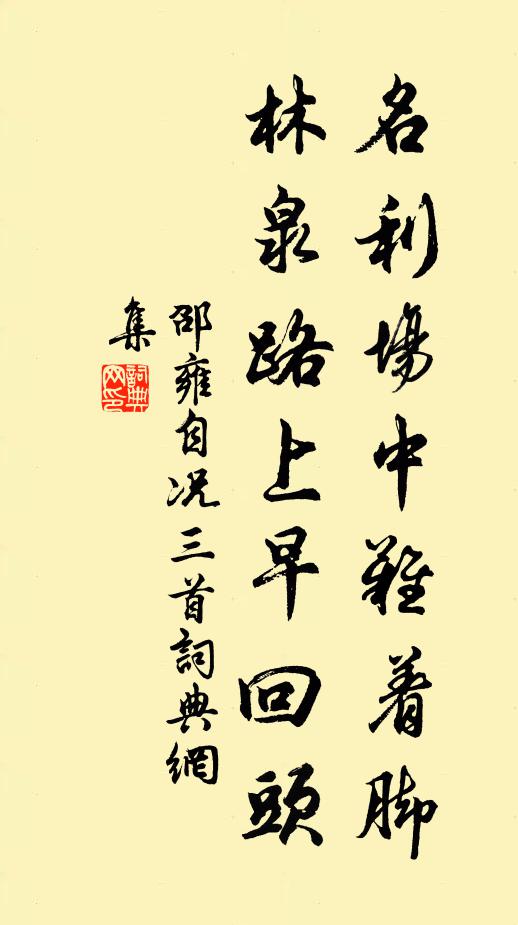 名利場中難着脚
林泉路上早回頭
邵雍自况三首詞典網
集
詞典
网印